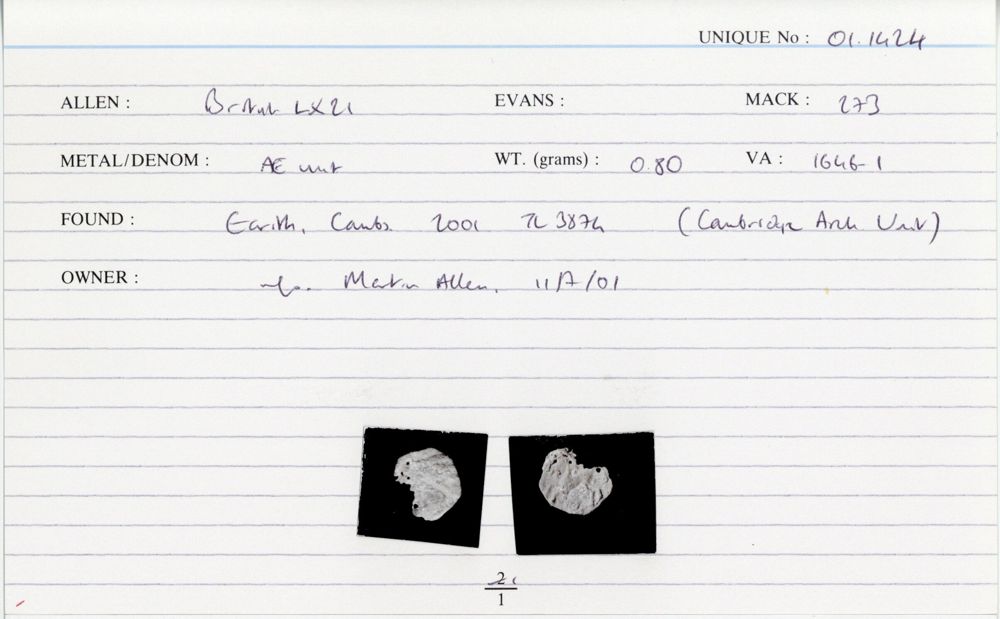 UNIQUE No : 01.1424
ALLEN : British LX21 EVANS : MACK : 273
METAL/DENOM : Æ unit WT. (grams) : 0.80 VA : 1646-1
FOUND : Earith, Cambs. 2001 TL 3874 (Cambridge Arch Unit)
OWNER : Martin Allen, 11/7/01
2
1